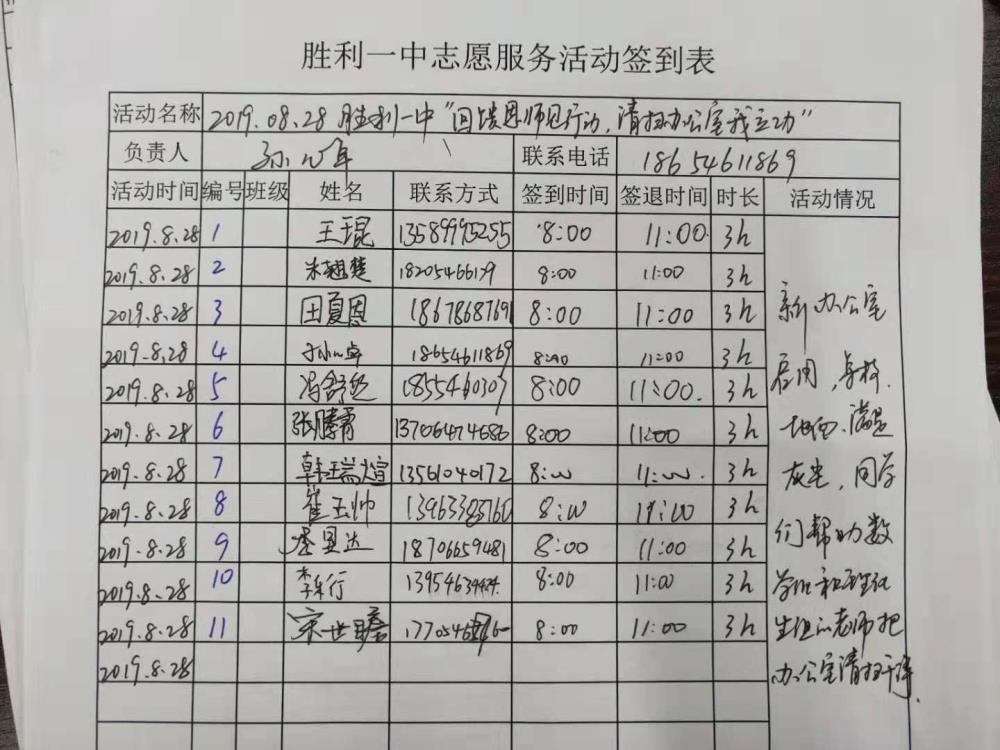 胜利一中志愿服务活动签到表
活动名称 2019.08.28 胜利一中"回馈恩师见行动,清扫办公室我立功"
负责人 联系电话 18654611869
活动时间 编号 班级 姓名 联系方式 签到时间 签退时间 时长 活动情况
2019.8.28 1 王琨 13589995255 8:00 11:00 3h
2019.8.28 2 朱翘楚 8:00 11:00 3h
2019.8.28 3 田夏恩 18678687691 8:00 11:00 3h
2019.8.28 4 18654611869 8:00 11:00 3h
2019.8.28 5 8:00 11:00 3h
2019.8.28 6 张腾霄 13706474686 8:00 11:00 3h
2019.8.28 7 韩瑞煊 13561040172 8:00 11:00 3h
2019.8.28 8 崔玉帅 8:00 11:00 3h
2019.8.28 9 18706659481 8:00 11:00 3h
2019.8.28 10 8:00 11:00 3h
2019.8.28 11 宋世 8:00 11:00 3h
2019.8.28
新办公室
启用,桌椅、
地面、满是
灰尘,同学
们帮助数
学组和理化
生组的老师把
办公室清扫干净.